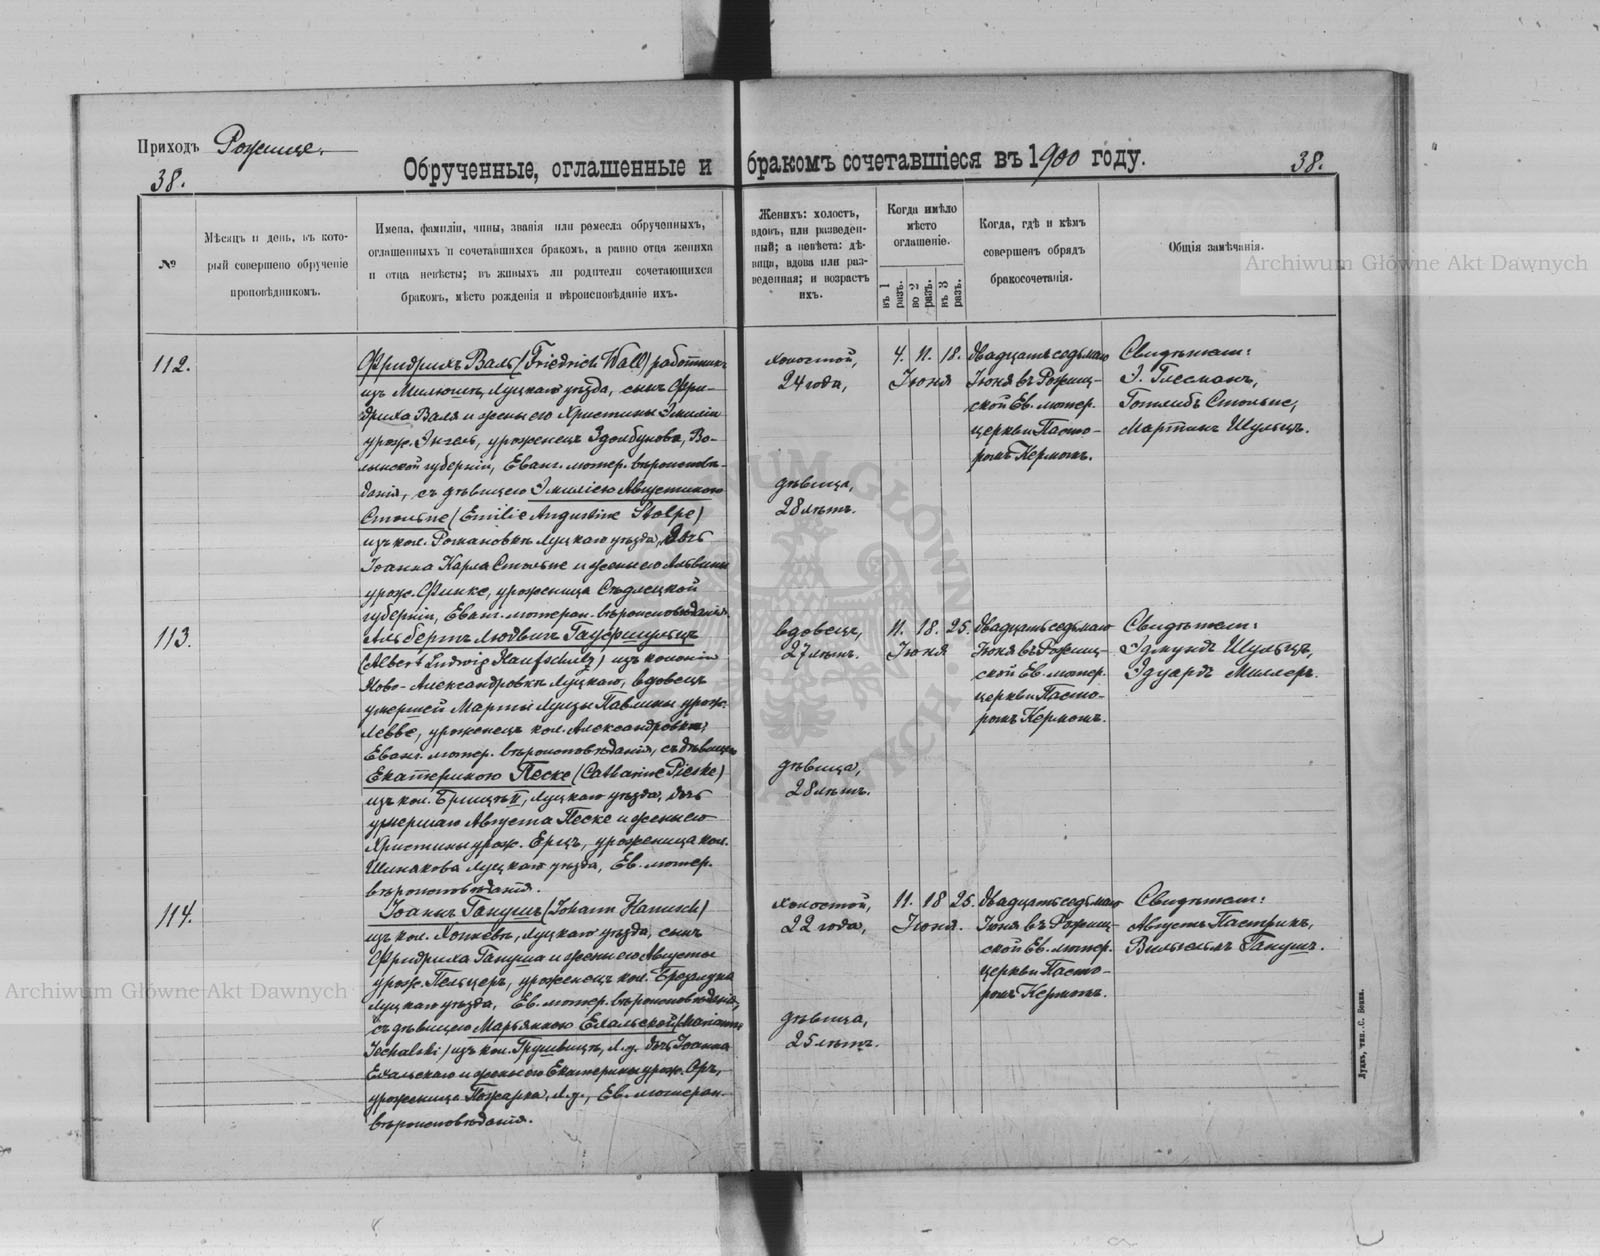 Приходъ Рожище.
Обрученные, оглашенные и бракомъ сочетавшіеся въ 1900 году.
38.
38.
№
Мѣсяцъ и день, въ кото-
рый совершено обрученіе
проповѣдникомъ.
Имена, фамиліи, чины, званія или ремесла обрученныхъ,
оглашенныхъ и сочетавшихся бракомъ, а равно отца жениха
и отца невѣсты; въ живыхъ ли родители сочетающихся
бракомъ, мѣсто рожденія и вѣроисповѣданіе ихъ.
Женихъ: холостъ,
вдовъ, или разведен-
ный; а невѣста: дѣ-
вица, вдова или раз-
веденная; и возрастъ
ихъ.
Когда имѣло
мѣсто
оглашеніе.
въ 1 разъ.
во 2 разъ.
въ 3 разъ.
Когда, гдѣ и кѣмъ
совершенъ обрядъ
бракосочетанія.
Общія замѣчанія.
Archiwum Główne Akt Dawnych
112.
Фридрихъ Валь (Friedrich Wall) работникъ
изъ Милюшъ, Луцкаго уѣзда, сынъ Фри-
дриха Валя и жены его Христины Эмиліи
урож. Энгель, уроженецъ Здолбунова, Во-
лынской губерніи, Еванг. лютер. вѣроисповѣ-
данія, съ дѣвицею Эмиліею Августиною
Стольпе (Emilie Augustine Stolpe)
изъ кол. Романовкъ Луцкаго уѣзда, дочь
Іоанна Карла Стольпе и жены его Альвины
урож. Финке, уроженица Сѣдлецкой
губерніи, Еванг. лютеран. вѣроисповѣданія.
холостой,
24 года,
дѣвица,
28 лѣтъ.
4. 11. 18.
Іюня
Двадцать седьмаго
Іюня въ Рожищ-
ской Ев. лютер.
церкви Пасто-
ромъ Кермомъ.
Свидѣтели:
Э. Глесманъ,
Готлибъ Стольпе,
Мартинъ Шульцъ.
113.
Альбертъ Людвигъ Гауфшульцъ
(Albert Ludwig Haufschulz) изъ колоніи
Ново-Александровкъ Луцкаго, вдовецъ
умершей Марты Луизы Павлины урож.
Левве, уроженецъ кол. Александровки,
Еванг. лютер. вѣроисповѣданія, съ дѣвицею
Екатериною Песке (Catharine Pieske)
изъ кол. Брищъ II, Луцкаго уѣзда, дочь
умершаго Августа Песке и жены его
Христины урож. Ерцъ, уроженица кол.
Шинякова Луцкаго уѣзда, Ев. лютер.
вѣроисповѣданія.
вдовецъ,
27 лѣтъ.
дѣвица,
28 лѣтъ.
11. 18. 25.
Іюня
Двадцать седьмаго
Іюня въ Рожищ-
ской Ев. лютер.
церкви Пасто-
ромъ Кермомъ.
Свидѣтели:
Эдмундъ Шульцъ,
Эдуардъ Миллеръ.
114.
Іоаннъ Ганушъ (Johann Hanusch)
изъ кол. Луцкаго уѣзда, сынъ
Фридриха Гануша и жены его Августы
урож. Пельцеръ, уроженецъ кол.
Луцкаго уѣзда, Ев. лютер. вѣроисповѣданія,
съ дѣвицею Марьянною Ехальской (Marianna
Jechalski) изъ кол. Грушвицъ, Л.у. дочь Іоанна
Ехальскаго и жены его Екатерины урож. Оръ,
уроженица Пожарка, Л.у., Ев. лютеран.
вѣроисповѣданія.
холостой,
22 года,
дѣвица,
25 лѣтъ.
11. 18 25.
Іюня.
Двадцать седьмаго
Іюня въ Рожищ-
ской Ев. лютер.
церкви Пасто-
ромъ Кермомъ.
Свидѣтели:
Августъ Пастрикъ,
Вильгельмъ Ганушъ.
Archiwum Główne Akt Dawnych
Луцкъ, тип. С. Бокка.